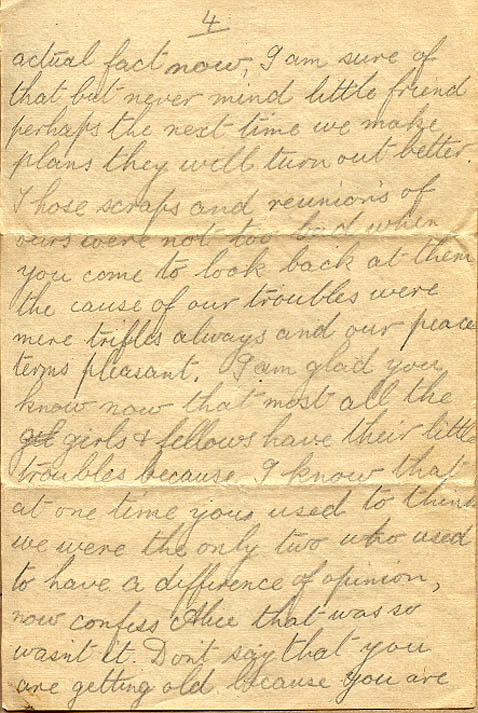 4
actual fact now, I am sure of
that but never mind little friend
perhaps the next time we make
plans they will turn out better.
Those scraps and reunions of
ours were not too bad when
you come to look back at them
the cause of our troubles were
mere trifles always and our peace
terms pleasant. I am glad you
know now that most all the
girls & fellows have their little
troubles because I know that
at one time you used to think
we were the only two who used
to have a difference of opinion,
now confess Alice that was so
wasnt it. Dont say that you
are getting old because you are